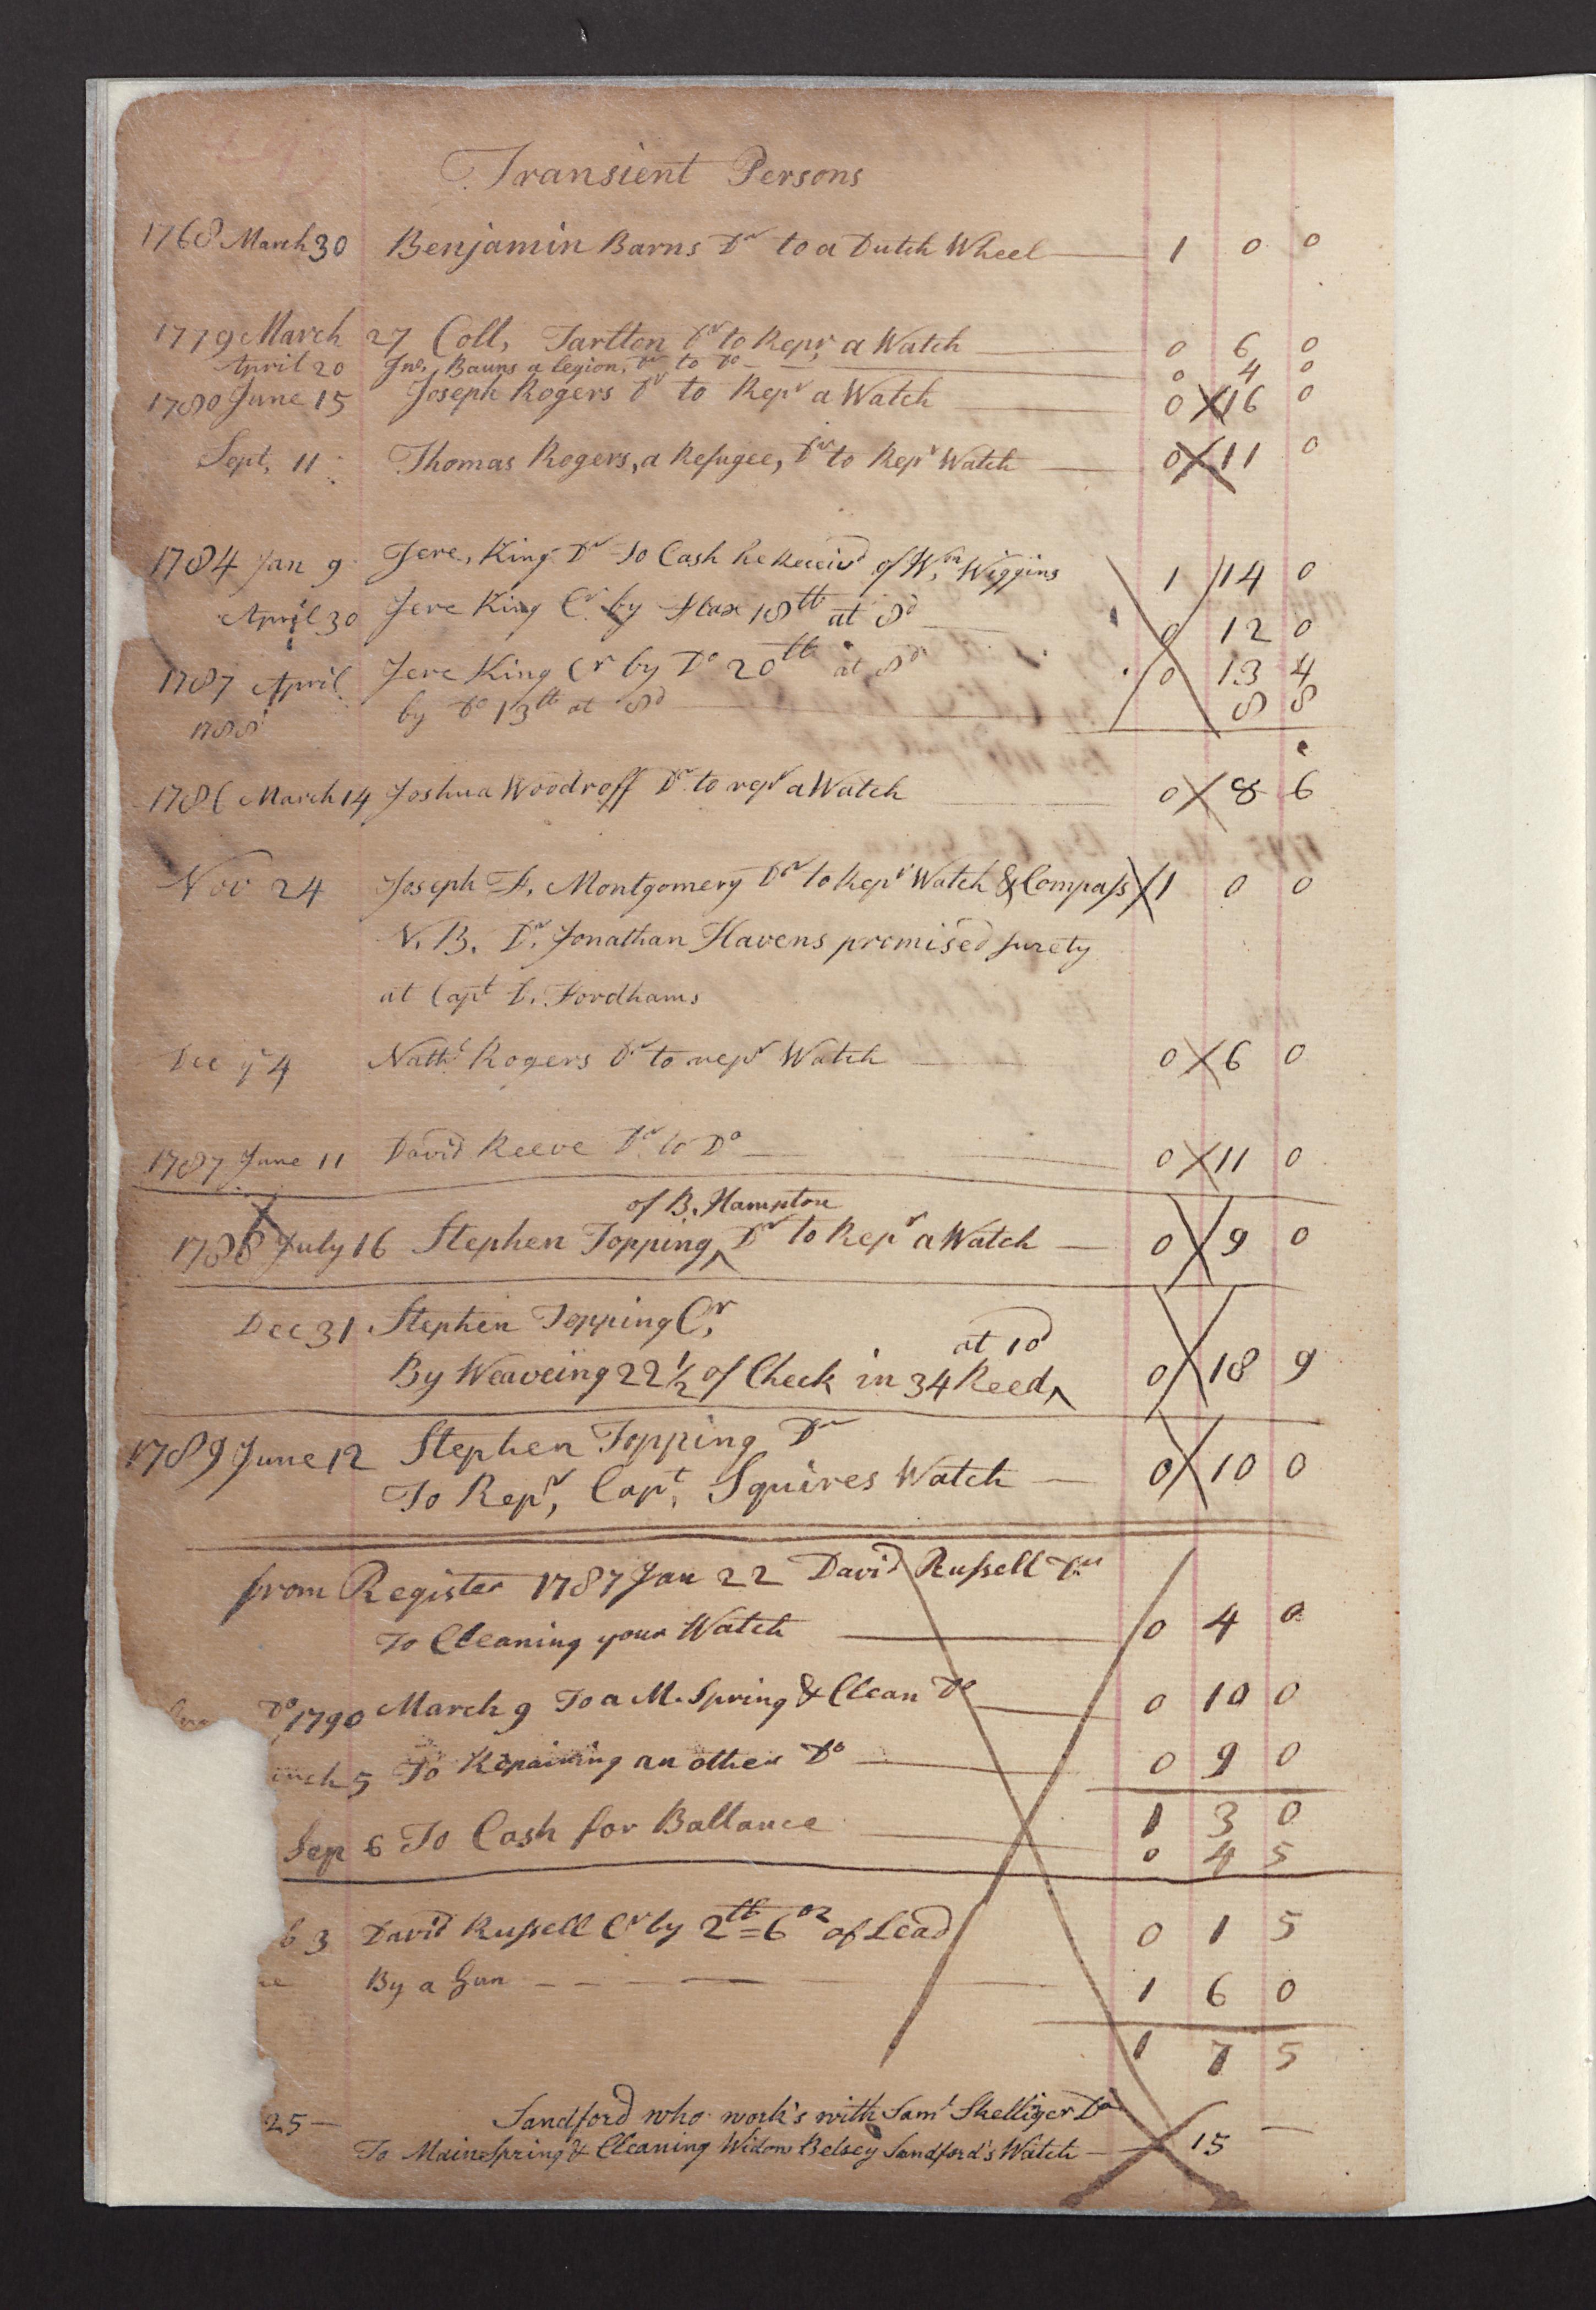 Transient Persons
1768 March 30 Benjamin Barns Dr to a Dutch Wheel — 1 0 0
1779 March 27 Coll, Tarlton Dr to Repr a Watch — 0 6 0
April 20 Jno, Bauns a legion, Dr to Do — 0 4 0
1780 June 15 Joseph Rogers Dr to Repr a Watch — 0 16 0
Sept, 11 Thomas Rogers, a Refugee, Dr to Repr Watch — 0 11 0
1784 Jan 9 Jere, King Dr To Cash he Receivd of Wm Wiggins 1 14 0
April 30 Jere King Cr by Flax 18 lb at 8d — 0 12 0
1787 April Jere King Cr by Do 20 lb at 8d 0 13 4
1788 by Do 13 lb at 8d — 8 8
1786 March 14 Joshua Woodroff Dr to repr a Watch 0 8 6
Nov 24 Joseph F. Montgomery Dr to Repr Watch & Compass 1 0 0
N. B. Dr. Jonathan Havens promised surety
at Capt D. Fordhams
Dec ye 4 Nathl Rogers Dr to repr Watch 0 6 0
1787 June 11 David Reeve Dr to Do — 0 11 0
of B. Hampton
1788 July 16 Stephen Topping ^ Dr to Repr a Watch — 0 9 0
Dec 31 Stephen Topping Cr,
at 10d
By Weaveing 22 1/2 of Check in 34 Reed ^ 0 18 9
1789 June 12 Stephen Topping Dr
To Repr, Capt, Squires Watch — 0 10 0
from Register 1787 Jan 22 David Russell Dr
To Cleaning your Watch — 0 4 0
Do 1790 March 9 To a M. Spring & Clean Do — 0 10 0
arch 5 To Repairing an other Do — 0 9 0
1 3 0
Sep 6 To Cash for Ballance — 0 4 5
b 3 David Russell Cr by 2 lb = 6 oz of Lead 0 1 5
By a Gun — 1 6 0
1 7 5
25 — Sandford who work's with Saml Skelliger Dr
To Mainspring & Cleaning Widow Betsey Sandford's Watch — 15 —